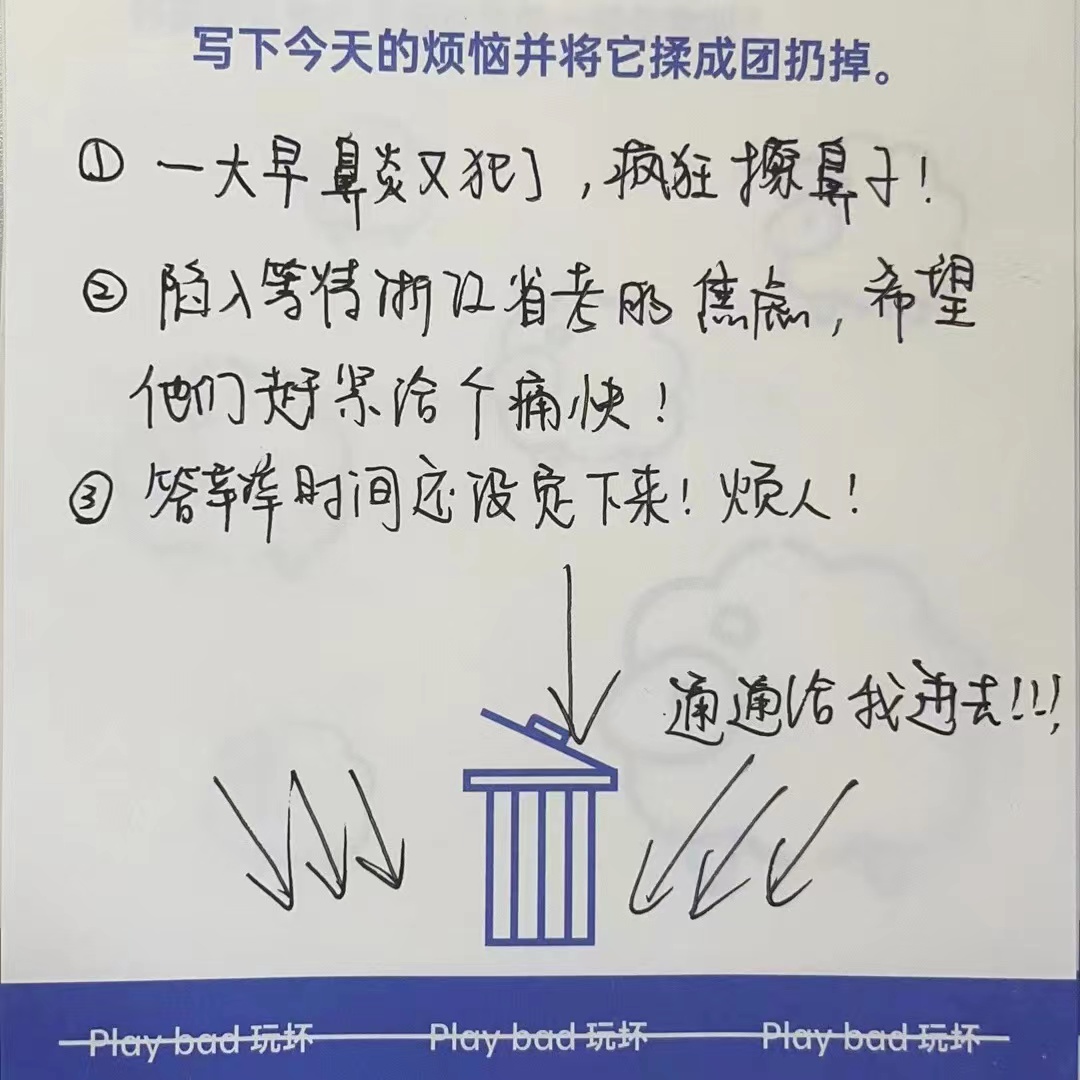 写下今天的烦恼并将它揉成团扔掉。
① 一大早鼻炎又犯了，疯狂擦鼻子！
② 陷入等待省考的焦虑，希望
他们赶紧给个痛快！
③ 答辩时间还没定下来！烦人！
通通给我去!!!
Play bad 玩坏 Play bad 玩坏 Play bad 玩坏